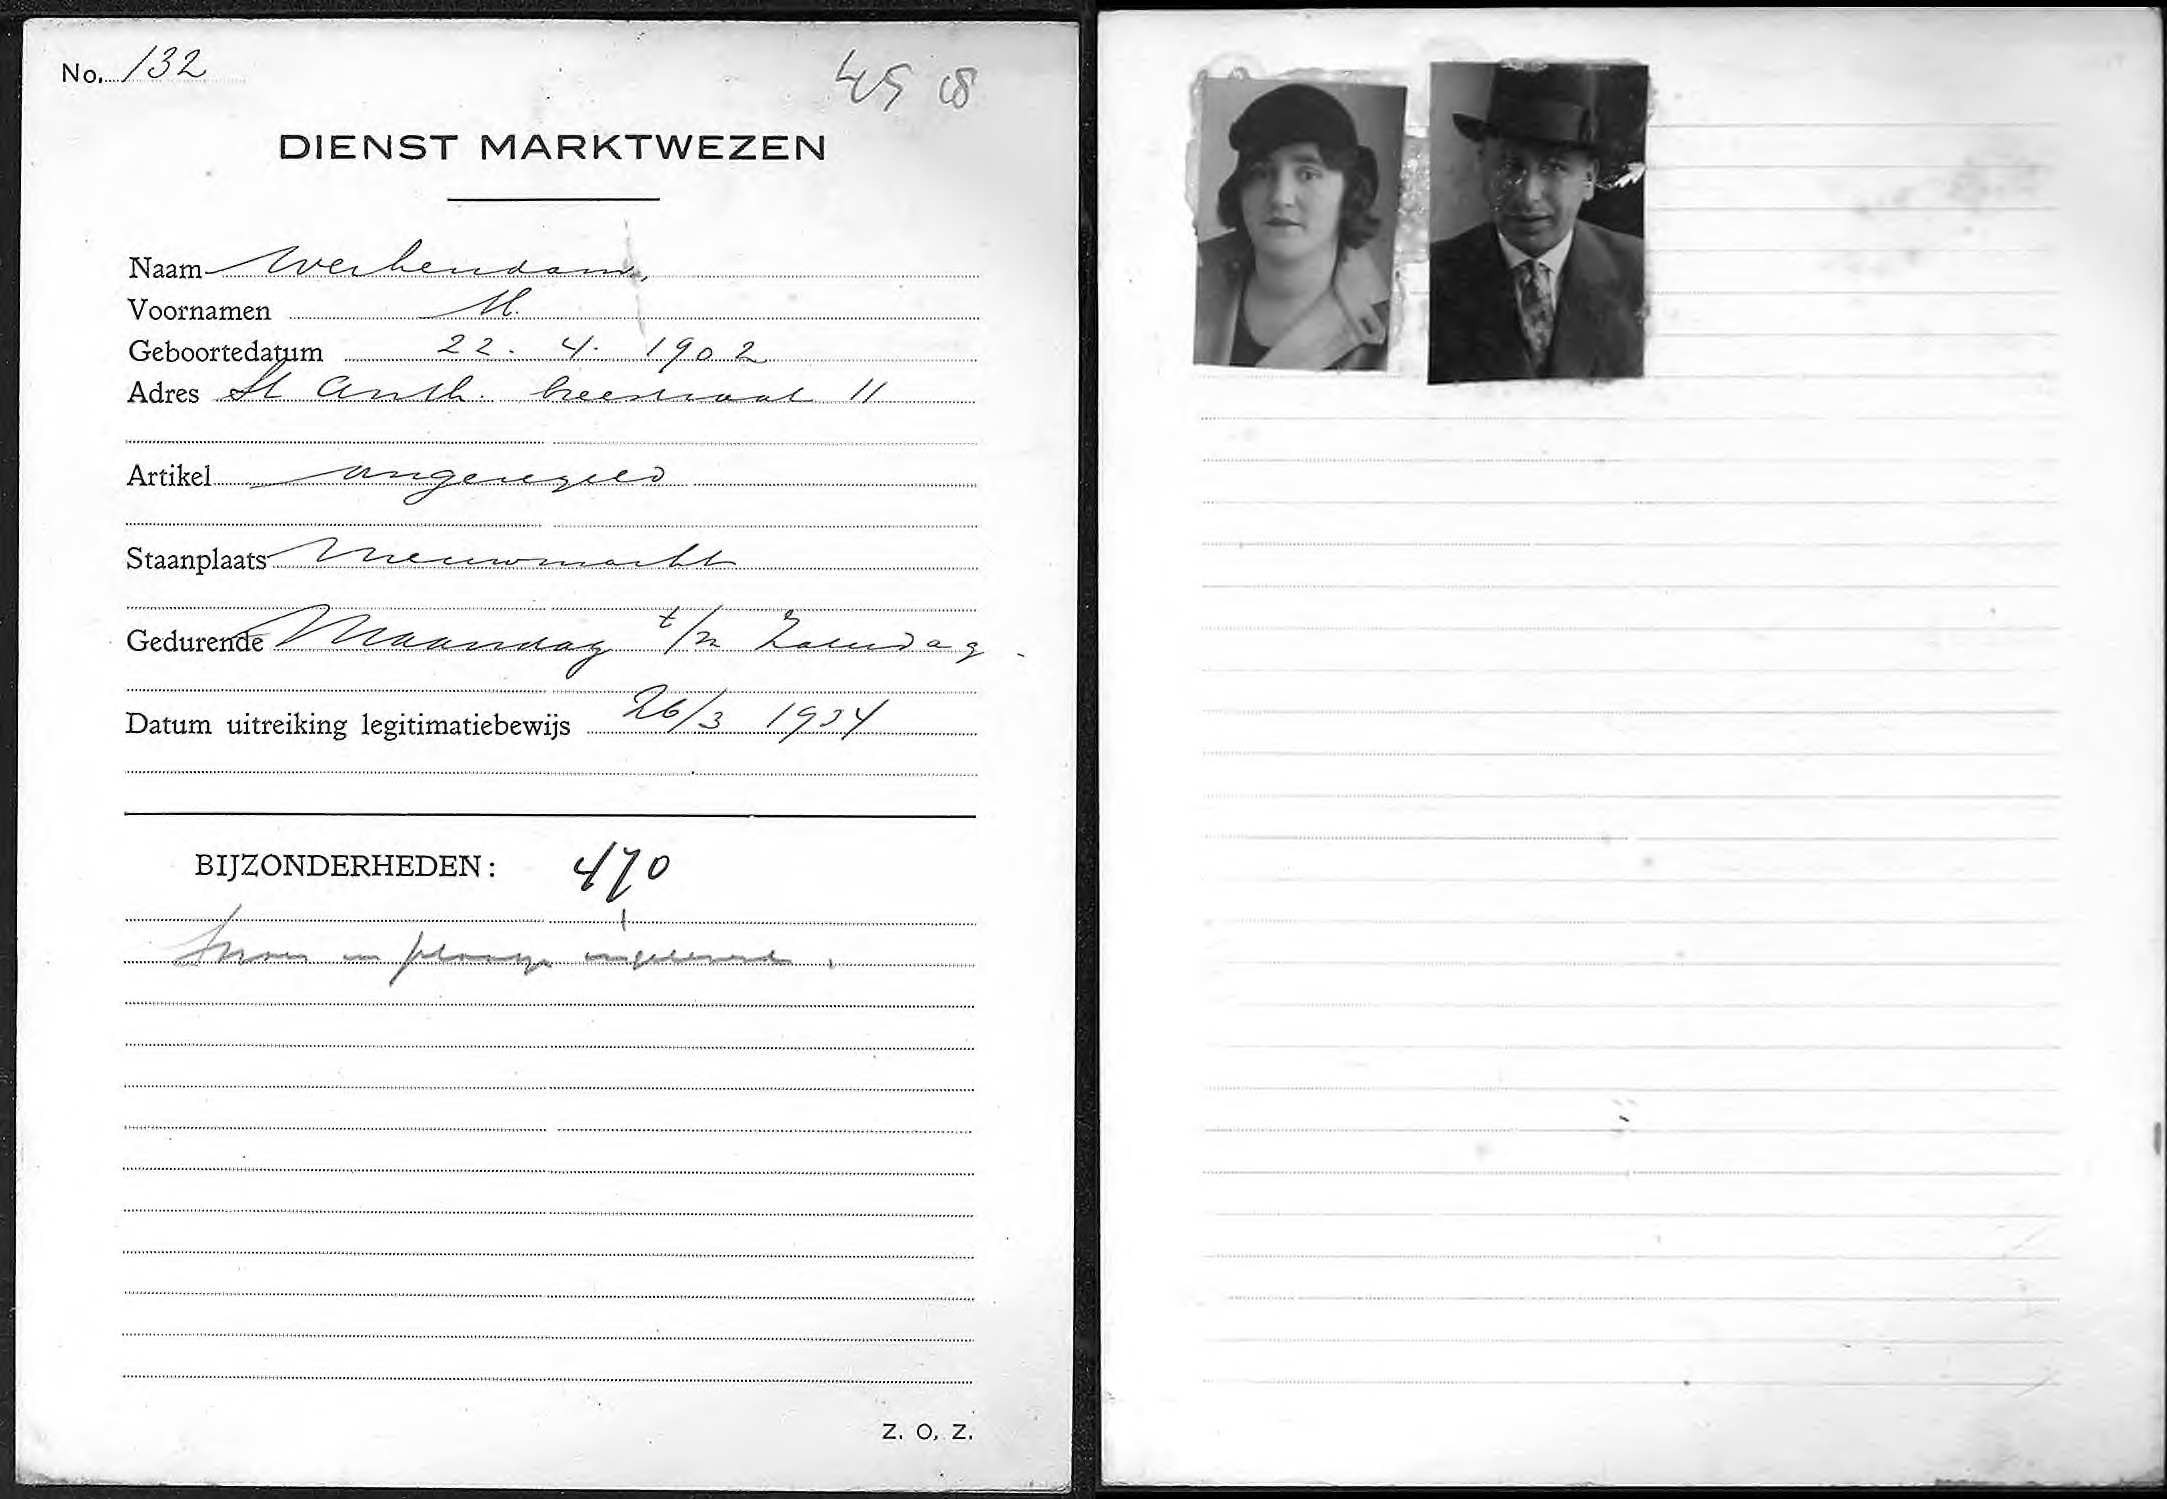 No. 132
45 18
DIENST MARKTWEZEN
Naam Werkendam,
Voornamen M.
Geboortedatum 22. 4. 1902
Adres St Anth. breestraat 11
Artikel ongeregeld
Staanplaats Nieuwmarkt
Gedurende Maandag t/m Zaterdag
Datum uitreiking legitimatiebewijs 26/3 1934
BIJZONDERHEDEN: 470
en plaatsje ingeleverd.
Z. O. Z.